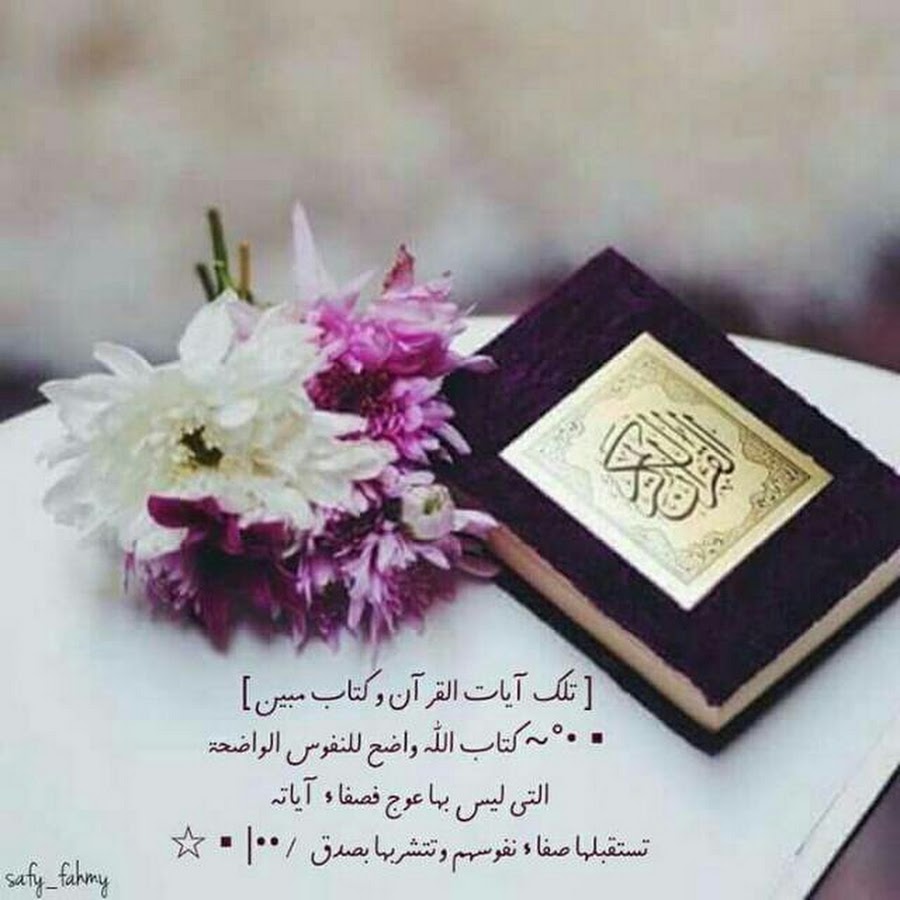 القرآن الكريم
[ تلك آيات القرآن وكتاب مبين ]
▪ •°~ كتاب الله واضح للنفوس الواضحة
التى ليس بها عوج فصفاء آياته
تستقبلها صفاء نفوسهم وتتشربها بصدق / ••| ▪ ☆
safy_fahmy